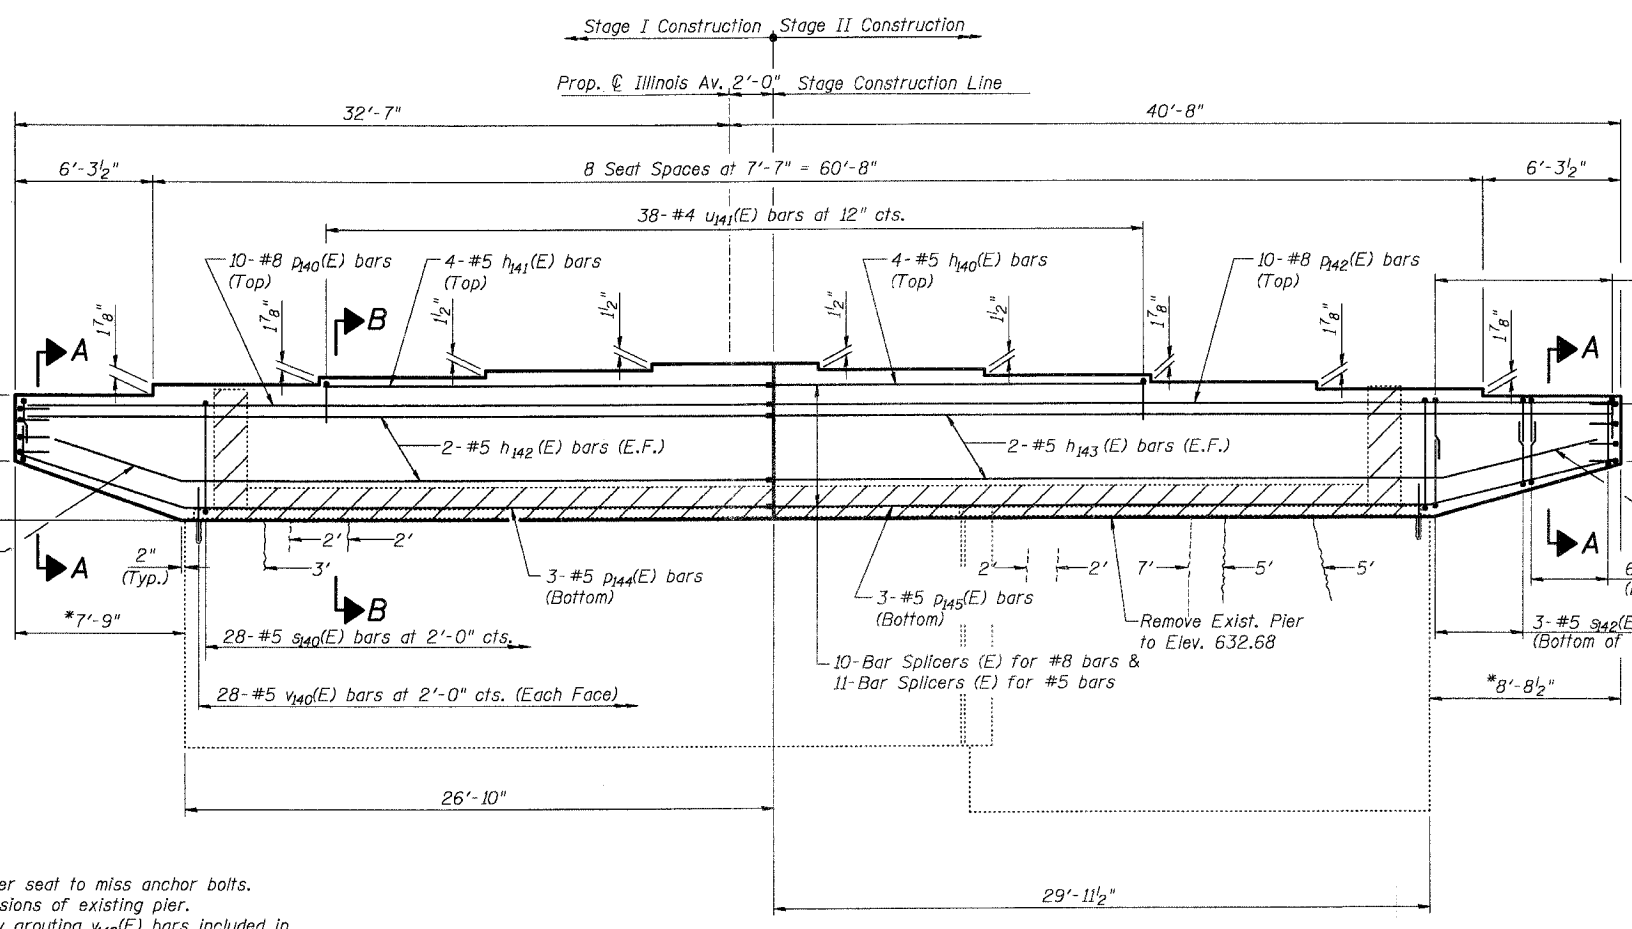 Stage I Construction Stage II Construction
Prop. ℄ Illinois Av. 2'-0" Stage Construction Line
32'-7" 40'-8"
6'-3½" 8 Seat Spaces at 7'-7" = 60'-8" 6'-3½"
38-#4 u141(E) bars at 12" cts.
10-#8 p140(E) bars
(Top)
4-#5 h141(E) bars
(Top)
4-#5 h140(E) bars
(Top)
10-#8 p142(E) bars
(Top)
1⅞" 1⅞" 1½" 1½" 1½" 1½" 1⅞" 1⅞" 1⅞"
B
A A
2-#5 h142(E) bars (E.F.) 2-#5 h143(E) bars (E.F.)
A A
2"
(Typ.)
2' 2'
3'
2' 2' 7' 5' 5'
B
3-#5 p144(E) bars
(Bottom)
3-#5 p145(E) bars
(Bottom)
Remove Exist. Pier
to Elev. 632.68
6
3-#5 s142(E
(Bottom of
*7'-9"
28-#5 s140(E) bars at 2'-0" cts.
10-Bar Splicers (E) for #8 bars &
11-Bar Splicers (E) for #5 bars
28-#5 v140(E) bars at 2'-0" cts. (Each Face)
*8'-8½"
26'-10"
29'-11½"
er seat to miss anchor bolts.
sions of existing pier.
grouting v140(E) bars included in